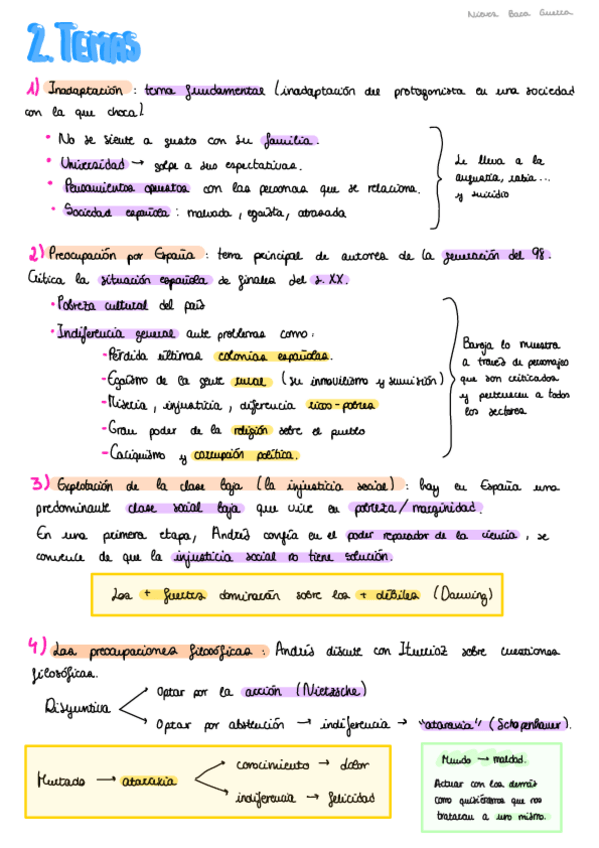 Nieves Baca Guerra
2. TEMAS
1) Inadaptación : tema fundamental (inadaptación del protagonista en una sociedad
con la que choca).
• No se siente a gusto con su familia.
• Universidad → golpe a sus expectativas.
• Pensamientos opuestos con las personas que se relaciona.
• Sociedad española : malvada, egoísta, atrasada
Le lleva a la
angustia, rabia...
y suicidio
2) Preocupación por España : tema principal de autores de la generación del 98.
Crítica la situación española de finales del s. XX.
• Pobreza cultural del país
• Indiferencia general ante problemas como:
- Pérdida últimas colonias españolas.
- Egoísmo de la gente rural (su inmovilismo y sumisión)
- Miseria, injusticia, diferencia ricos-pobres
- Gran poder de la religión sobre el pueblo
- Caciquismo y corrupción política.
Baroja lo muestra
a través de personajes
que son criticados
y pertenecen a todos
los sectores
3) Explotación de la clase baja (la injusticia social) : hay en España una
predominante clase social baja que vive en pobreza/marginidad.
En una primera etapa, Andrés confía en el poder reparador de la ciencia, se
convence de que la injusticia social no tiene solución.
Los + fuertes dominarán sobre los + débiles (Darwing)
4) Las preocupaciones filosóficas : Andrés discute con Iturrioz sobre cuestiones
filosóficas.
Disyuntiva
Optar por la acción (Nietzsche)
Optar por abstención → indiferencia → "ataraxia" (Schopenhauer).
Hurtado → ataraxia
conocimiento → dolor
indiferencia → felicidad
Mundo → maldad.
Actuar con los demás
como quisiéramos que nos
trataran a uno mismo.